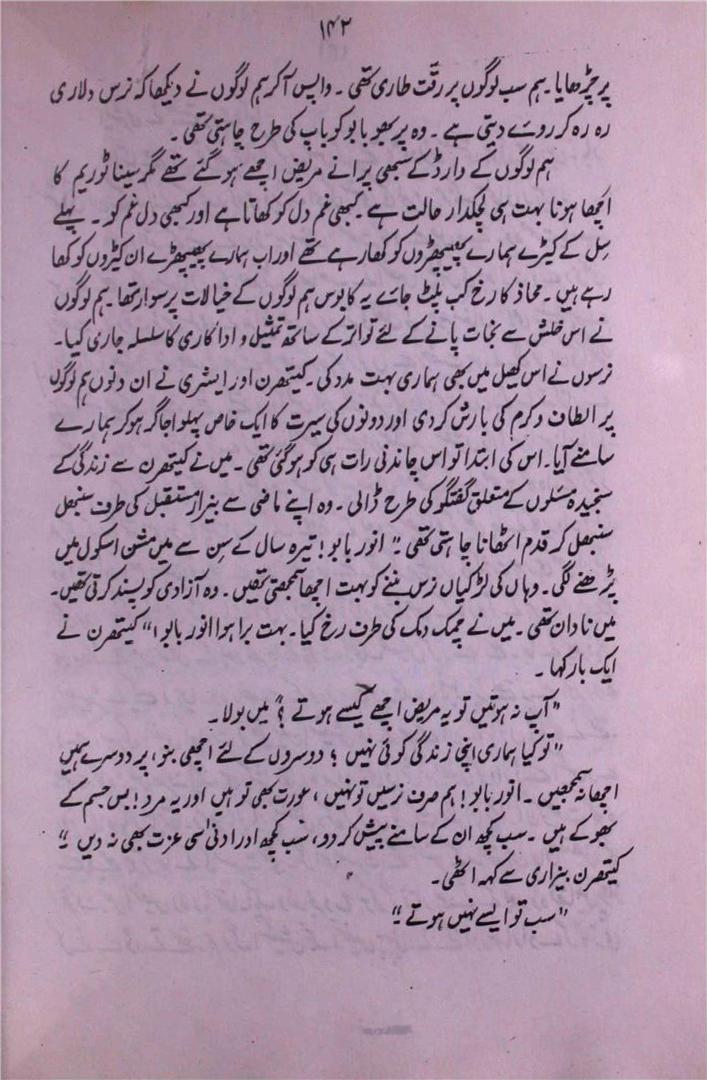 ۱۴۲
پر چڑھایا۔ ہم سب لوگوں پر رقّت طاری تھی۔ واپس آکر ہم لوگوں نے دیکھا کہ نرس دلاری
رہ رہ کر روئے دیتی ہے۔ وہ پربھو بابو کو باپ کی طرح چاہتی تھی۔
ہم لوگوں کے وارڈ کے سبھی پرانے مریض اچھے ہو گئے تھے مگر سیناٹوریم کا
اچھا ہونا بہت ہی لچکدار حالت ہے۔ کبھی غم دل کو کھاتا ہے اور کبھی دل غم کو۔ پہلے
سِل کے کیڑے ہمارے پھیپھڑوں کو کھا رہے تھے اور اب ہمارے پھیپھڑے ان کیڑوں کو کھا
رہے ہیں۔ محاذ کا رخ کب پلٹ جائے یہ کابوس ہم لوگوں کے خیالات پر سوار تھا۔ ہم لوگوں
نے اس خلش سے نجات پانے کے لئے تواتر کے ساتھ تمثیل و اداکاری کا سلسلہ جاری کیا۔
نرسوں نے اس کھیل میں بھی ہماری بہت مدد کی۔ کیتھرن اور ایشری نے ان دنوں ہم لوگوں
پر الطاف و کرم کی بارش کر دی اور دونوں کی سیرت کا ایک خاص پہلو اجاگر ہو کر ہمارے
سامنے آیا۔ اس کی ابتدا تو اس چاندنی رات ہی کو ہو گئی تھی۔ میں نے کیتھرن سے زندگی کے
سنجیدہ مسئلوں کے متعلق گفتگو کی طرح ڈالی۔ وہ اپنے ماضی سے بیزار مستقبل کی طرف سنبھل
سنبھل کر قدم اٹھانا چاہتی تھی۔ "انور بابو! تیرہ سال کے سِن سے میں مشن اسکول میں
پڑھنے لگی۔ وہاں کی لڑکیاں نرس بننے کو بہت اچھا سمجھتی تھیں۔ وہ آزادی کو پسند کرتی تھیں۔
میں نادان تھی۔ میں نے چمک دمک کی طرف رخ کیا۔ بہت برا ہوا انور بابو!" کیتھرن نے
ایک بار کہا۔
"آپ نہ ہوتیں تو یہ مریض اچھے کیسے ہوتے؟" میں بولا۔
"تو کیا ہماری اپنی زندگی کوئی نہیں؟ دوسروں کے لئے اچھی بنو، پر دوسرے ہمیں
اچھا نہ سمجھیں۔ انور بابو! ہم صرف نرسیں تو نہیں، عورت بھی تو ہیں اور یہ مرد! بس جسم کے
بھوکے ہیں۔ سب کچھ ان کے سامنے پیش کر دو، سب کچھ اور ادنیٰ سی عزت بھی نہ دیں۔"
کیتھرن بیزاری سے کہہ اٹھی۔
"سب تو ایسے نہیں ہوتے۔"